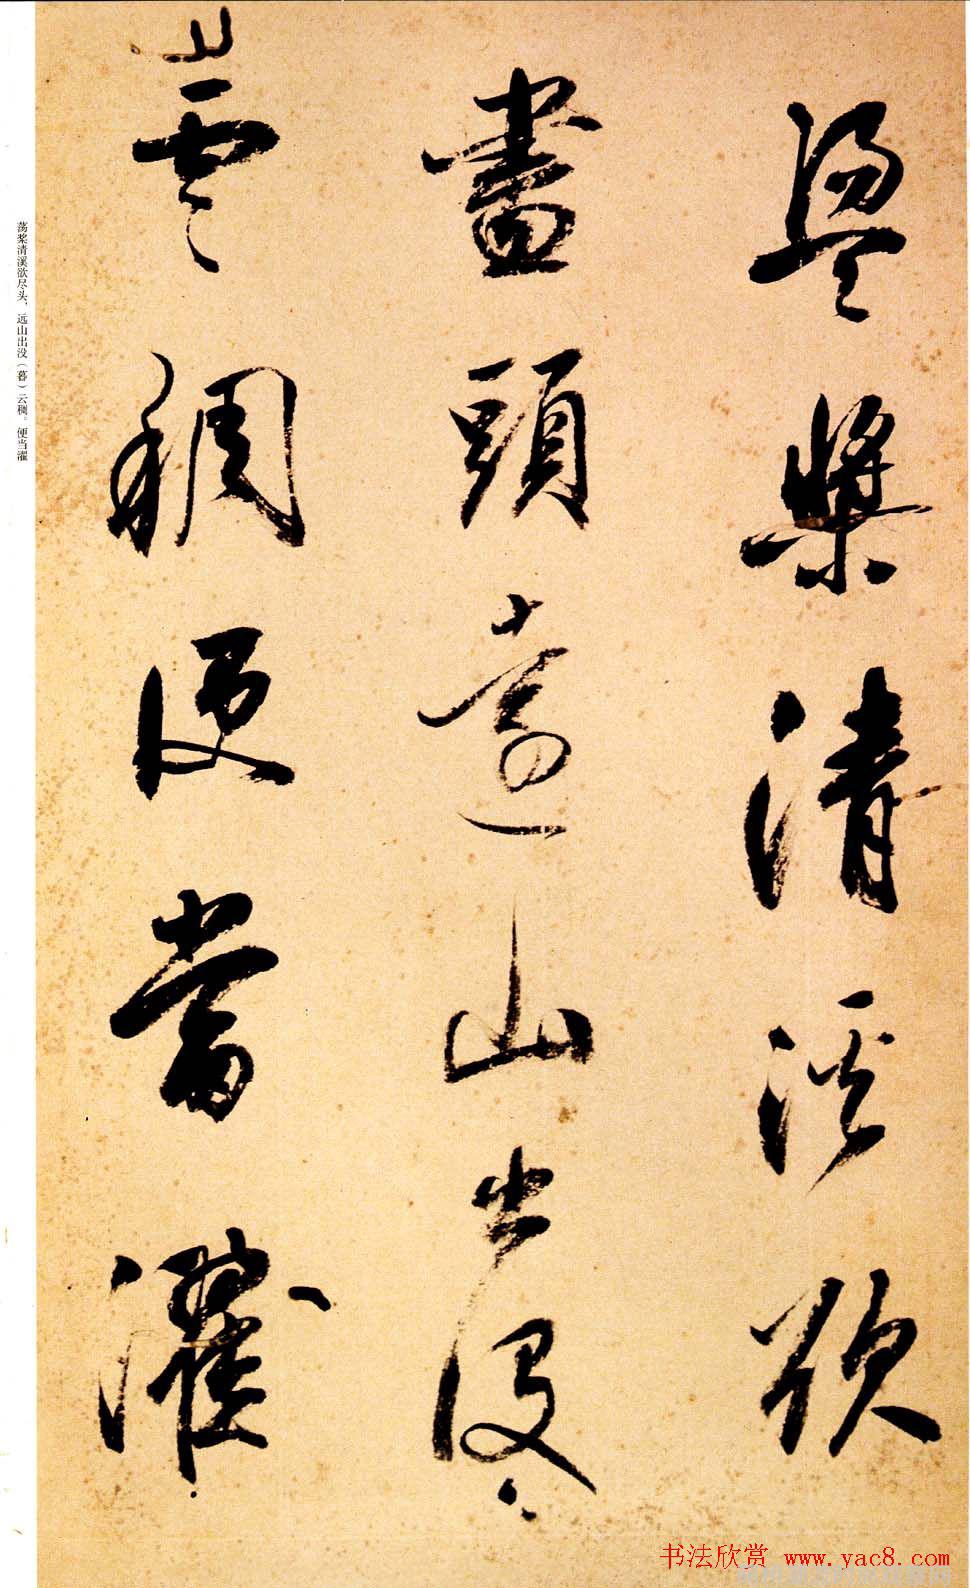 盪槳清溪欲
盡頭遠山出没
雲稠便當濯
荡桨清溪欲尽头，远山出没（暮）云稠。便当濯
书法欣赏 www.yac8.com